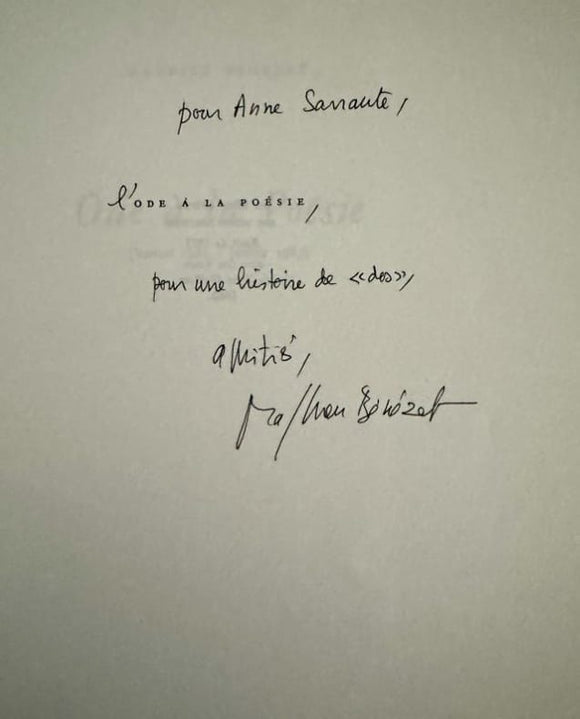 pour Anne Sarraute,
l'ODE À LA POÉSIE,
pour une histoire de «dos»,
amitié,
Mathieu Bénézet